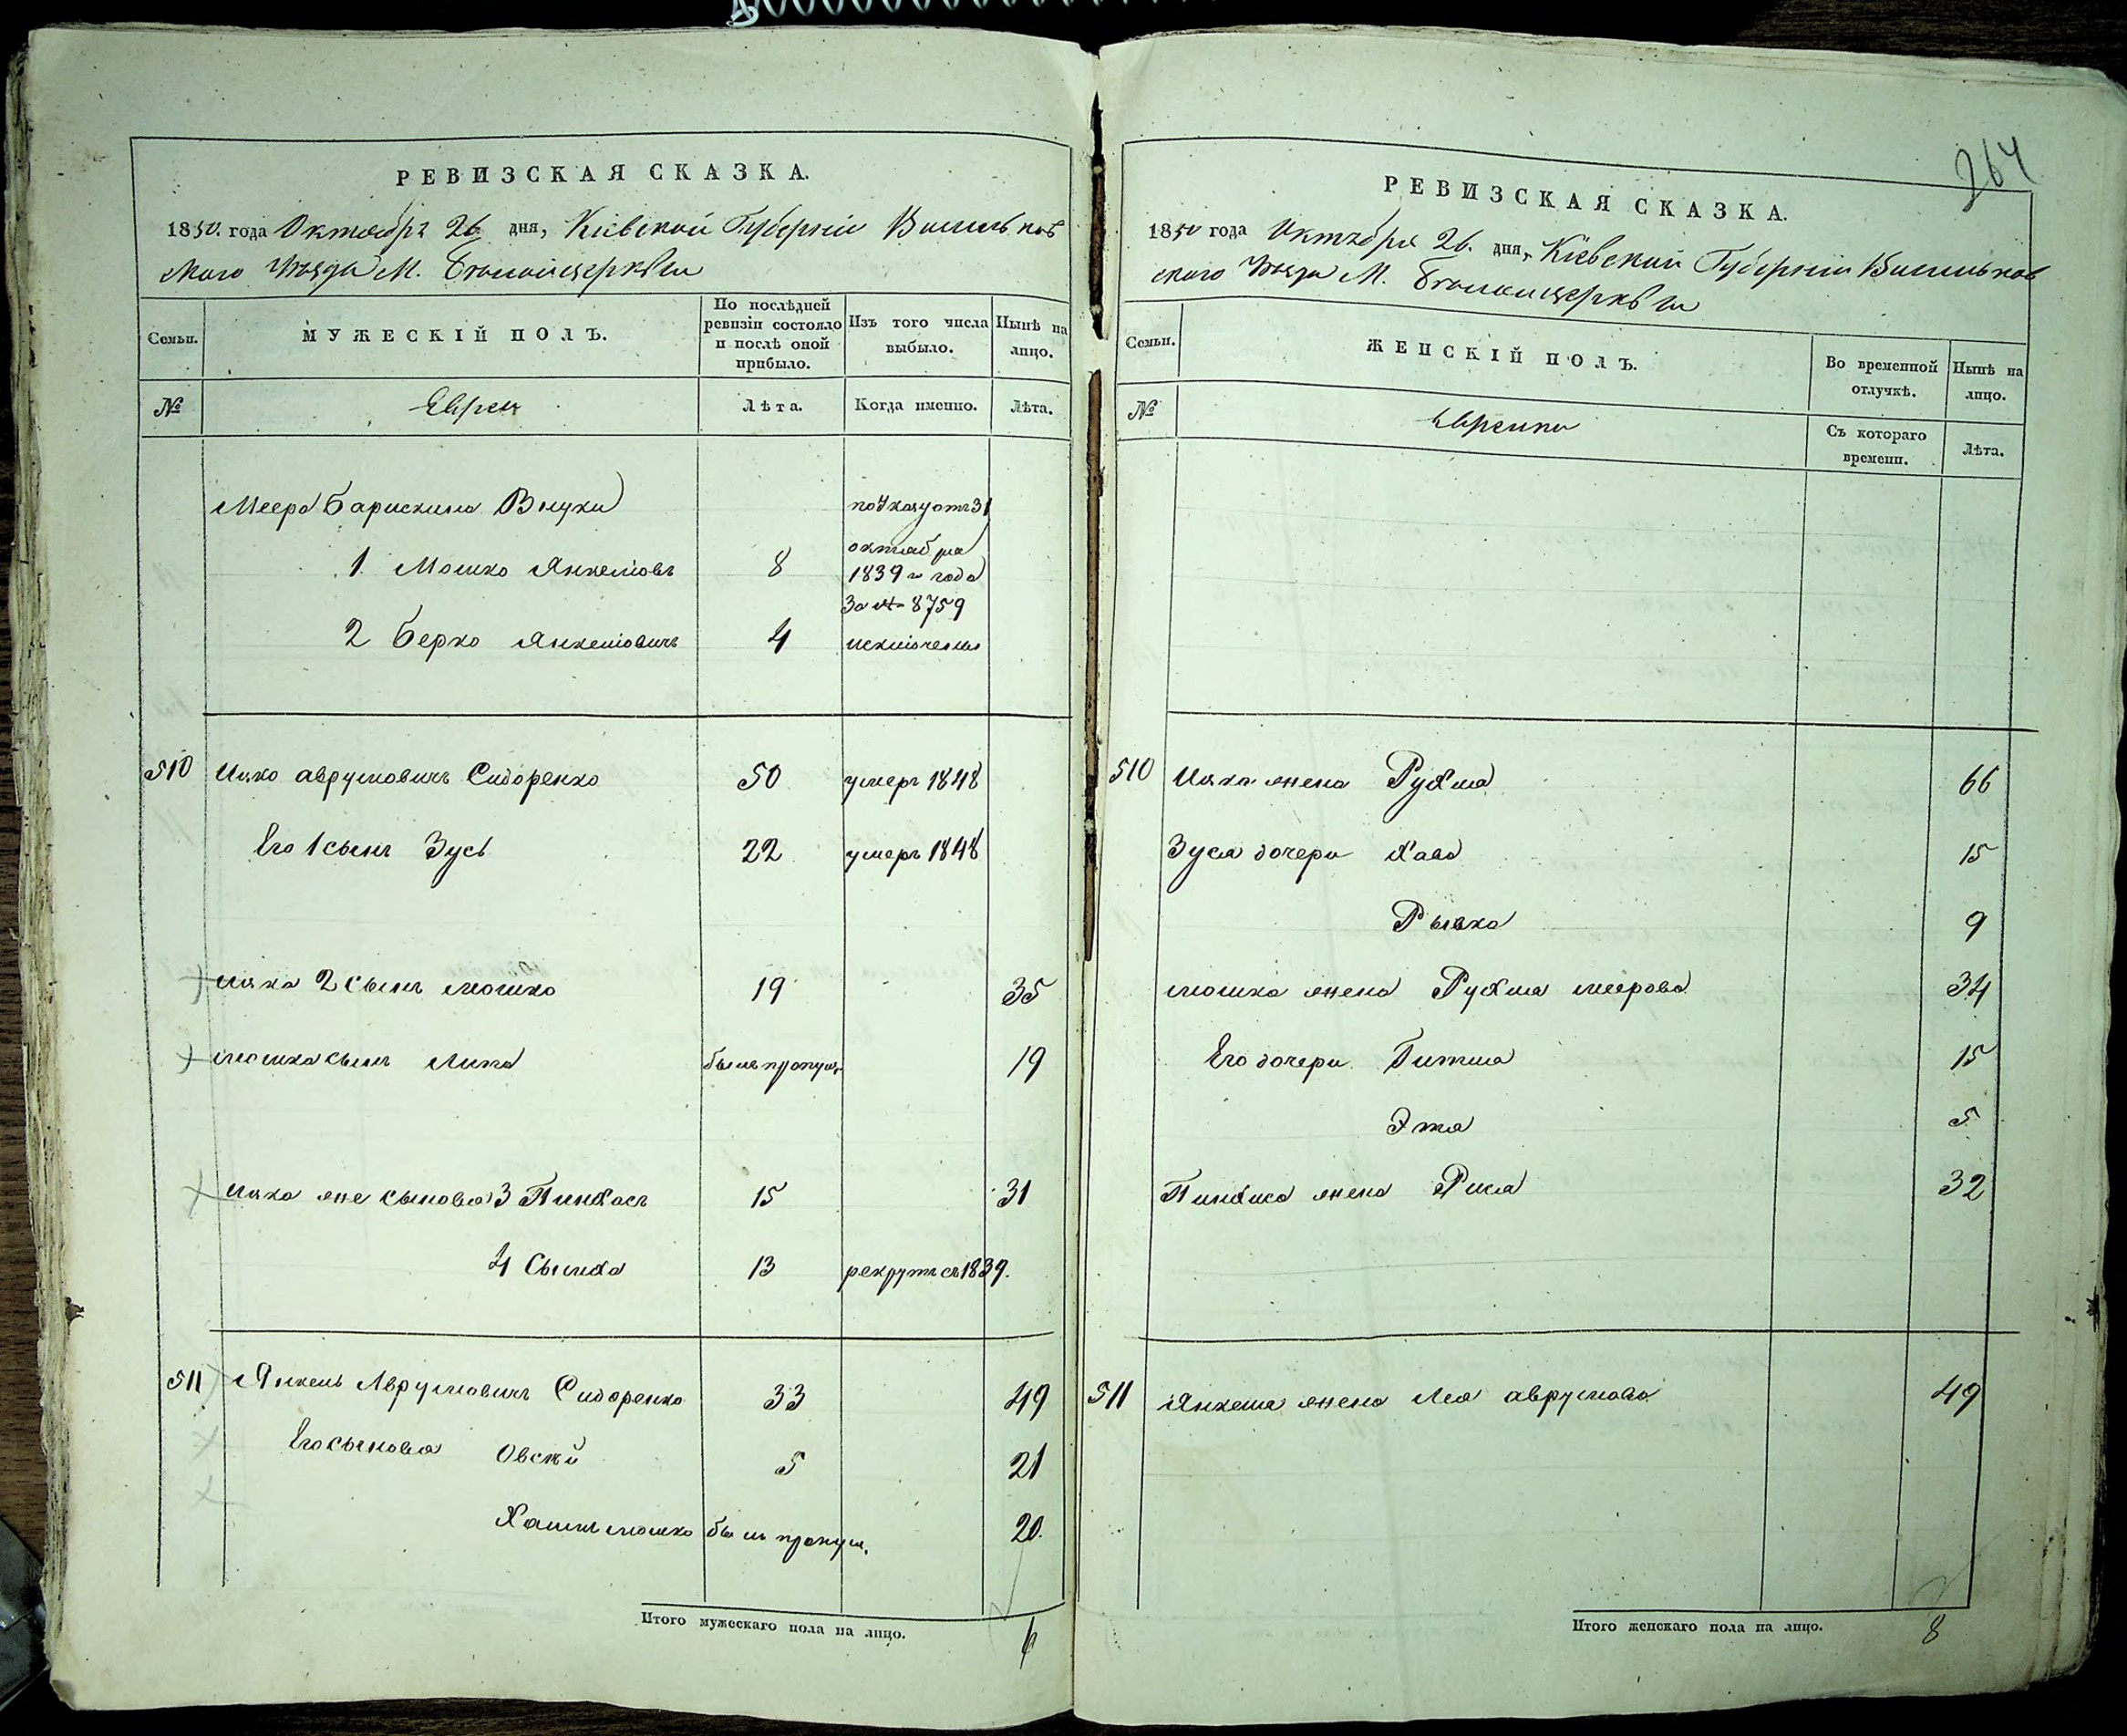 РЕВИЗСКАЯ СКАЗКА.
1850. года Октября 26 дня, Кіевской Губерніи Васильков
скаго Уѣзда М. Бѣлойцеркви
Семьи.
МУЖЕСКІЙ ПОЛЪ.
По послѣдней ревизіи состояло и послѣ оной прибыло.
Изъ того числа выбыло.
Нынѣ на лицо.
№
Евреи
Лѣта.
Когда именно.
Лѣта.
Меера Барискина Внуки
по Указу отъ 31
1. Мошко Янкелiовъ 8
октября
1839 го года
за № 8759
2 Берко Янкелiовичъ 4 исключены
510 Ицко Аврумовичъ Сидоренко 50 умеръ 1848
Его 1 сынъ Зусь 22 умеръ 1848
Ицка 2 сынъ Мошко 19 35
Мошка сынъ Липа былъ пропущ. 19
Ицка же сыновья 3 Пинхасъ 15 31
4 Сымха 13 рекрутъ съ 1839.
511 Янкель Аврумовичъ Сидоренко 33 49
Его сыновья Овсѣй 5 21
Хаимъ Мошко былъ пропущ. 20.
Итого мужескаго пола на лицо. 6
264
РЕВИЗСКАЯ СКАЗКА.
1850 года Октября 26. дня, Кіевской Губерніи Васильков
скаго Уѣзда М. Бѣлойцеркви
Семьи.
ЖЕНСКІЙ ПОЛЪ.
Во временной отлучкѣ.
Нынѣ на лицо.
№
Еврейки
Съ котораго времени.
Лѣта.
510 Ицка жена Рухля 66
Зуся дочери Хава 15
Рывка 9
Мошка жена Рухля Меерова 34
Его дочери Гитля 15
Этя 5
Пинхаса жена Рися 32
511 Янкеля жена Лея Аврумова 49
Итого женскаго пола на лицо. 8